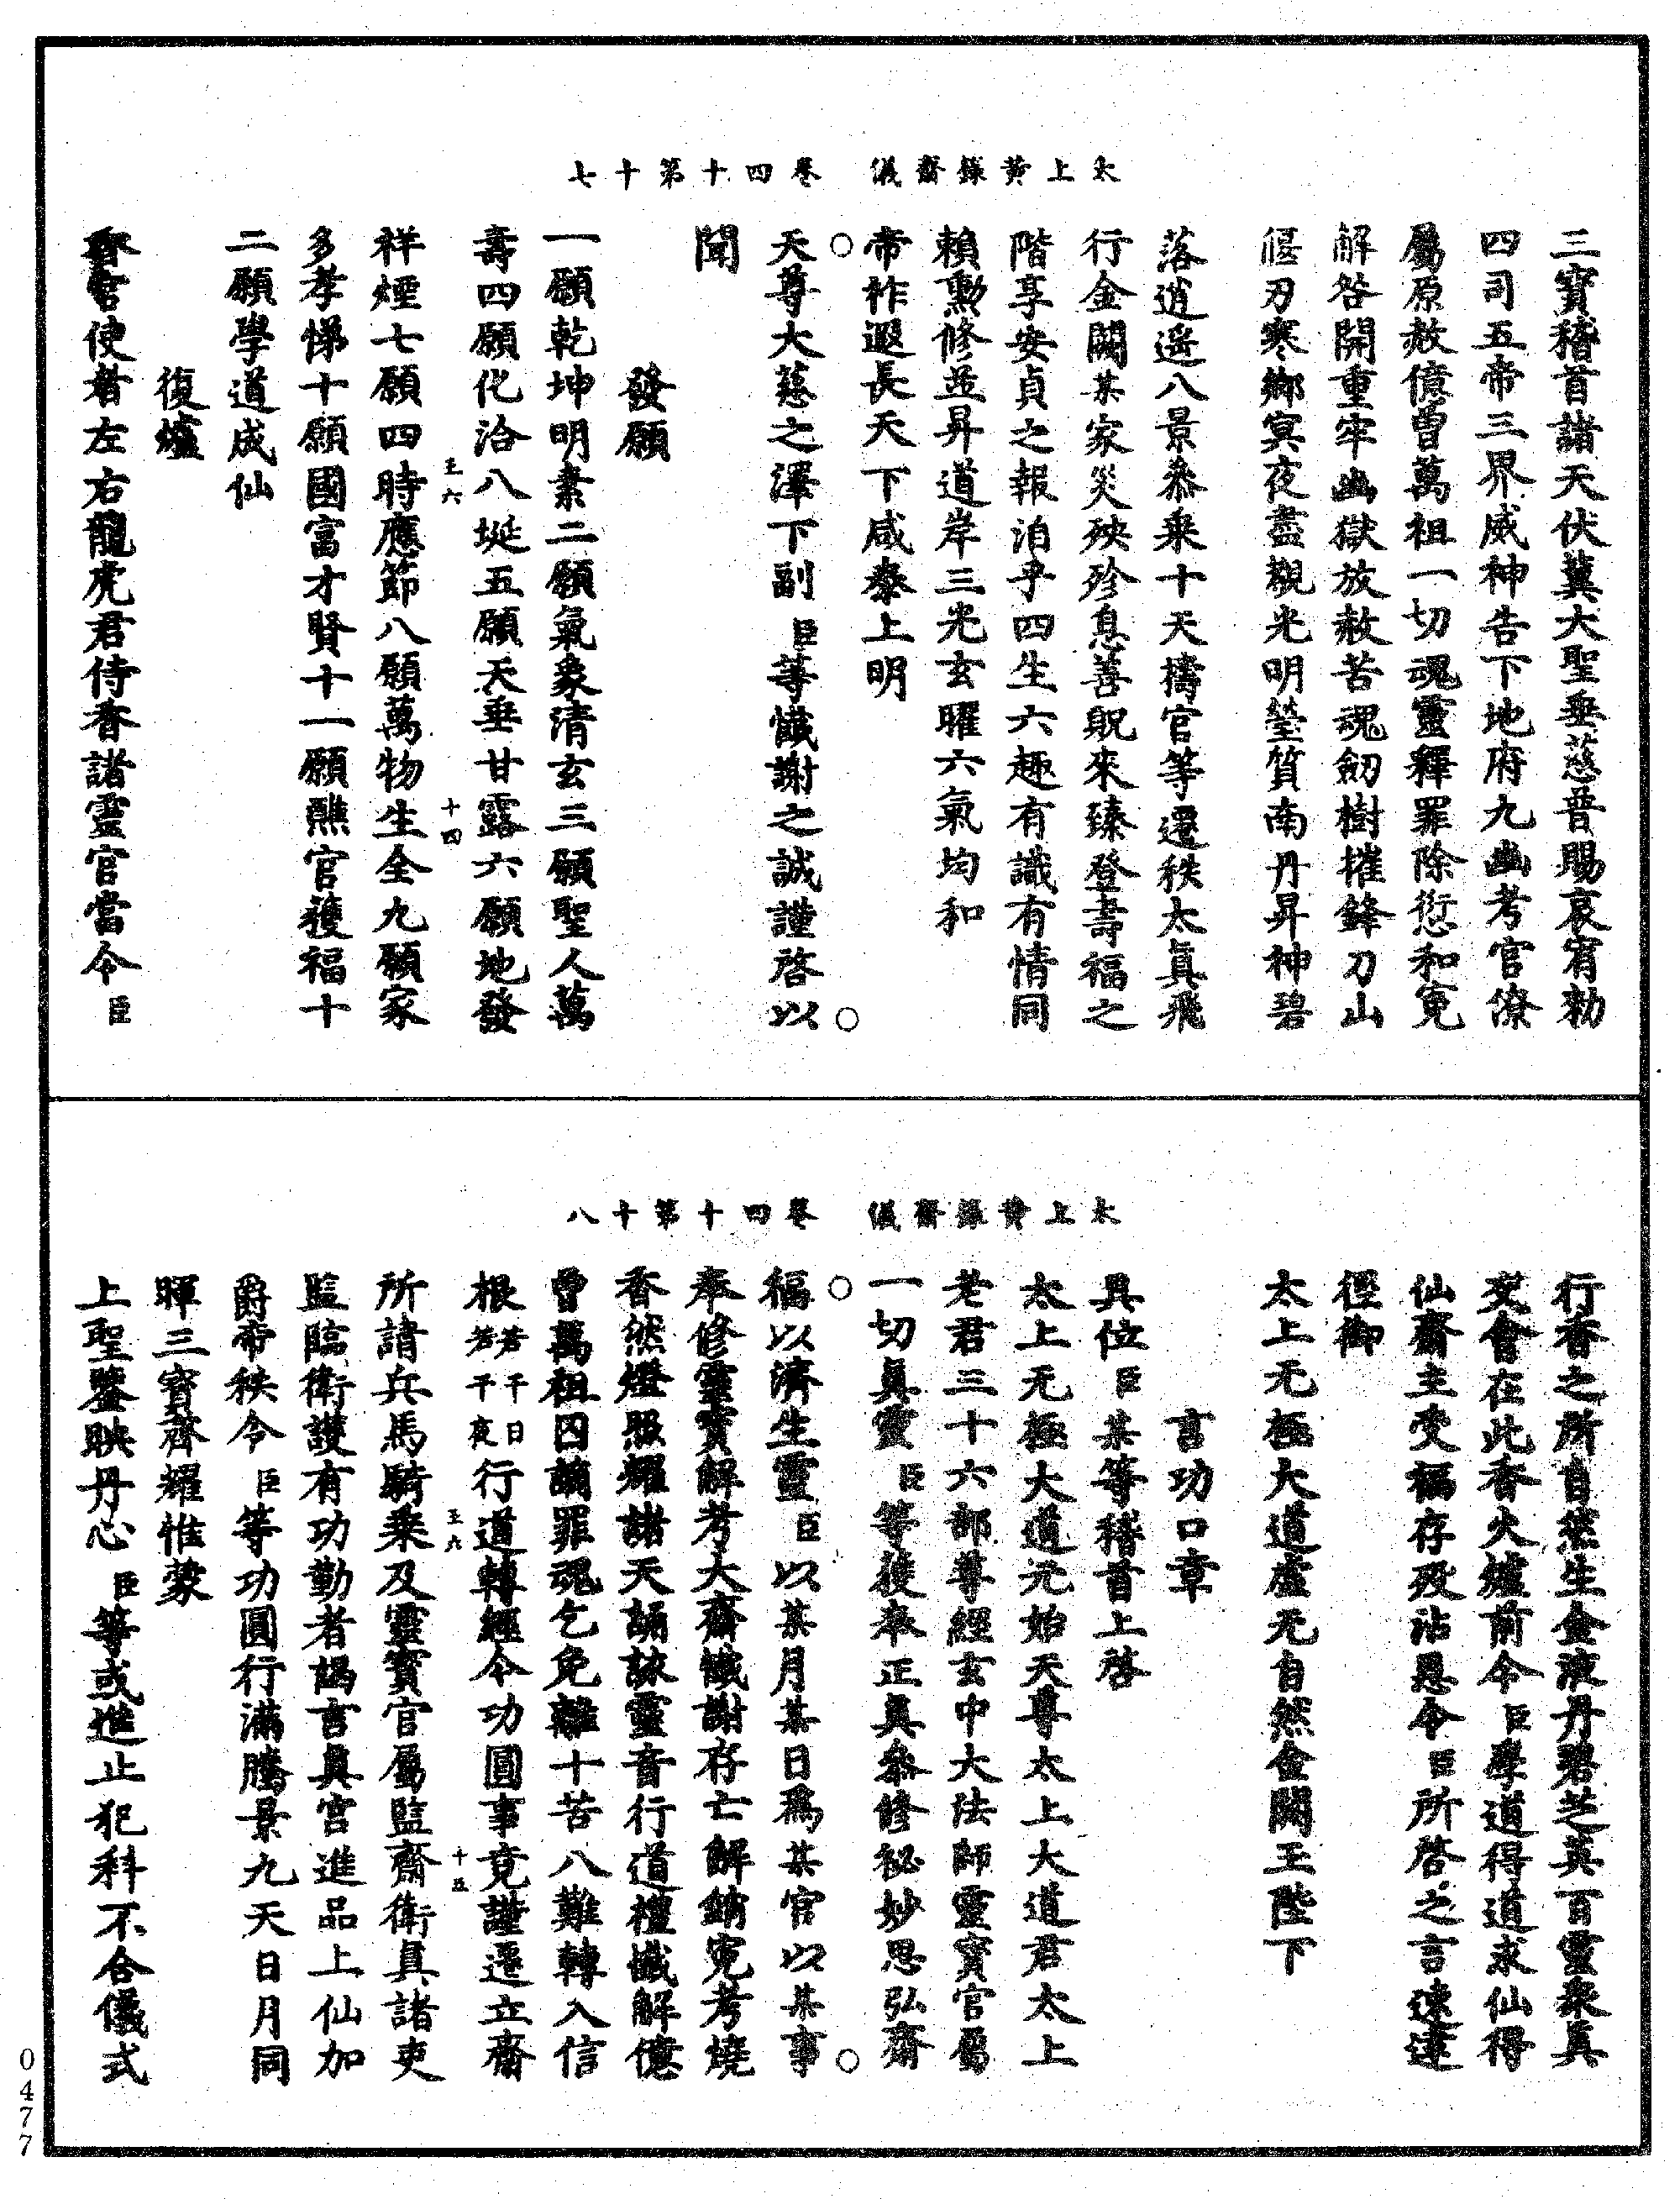 太上黃籙齋儀　卷四十第十七
三寶稽首諸天伏冀大聖垂慈普賜哀宥勑
四司五帝三界威神告下地府九幽考官僚
屬原赦億曾萬祖一切魂靈釋罪除愆和寃
解咎開重牢幽獄放赦苦魂劒樹摧鋒刀山
偃刃寒鄉冥夜盡覩光明瑩質南丹昇神碧
落逍遥八景叅乗十天擣官等遷秩太眞飛
行金闕某家災殃殄息善貺來臻登壽福之
階享安貞之報洎乎四生六趣有識有情同
賴勲修並昇道岸三光玄曜六氣均和
帝祚遐長天下咸泰上明
天尊大慈之澤下副臣等懺謝之誠謹啓以
聞
發願
一願乾坤明素二願氣象清玄三願聖人萬
壽四願化洽八埏五願天垂甘露六願地發
王六　十四
祥煙七願四時應節八願萬物生全九願家
多孝悌十願國富才賢十一願醮官獲福十
二願學道成仙
復爐
香官使者左右龍虎君侍香諸靈官當令臣
太上黃籙齋儀　卷四十第十八
行香之所自然生金液丹碧芝英百靈衆眞
交會在此香火爐前令臣學道得道求仙得
仙齋主受福存歿沾恩令臣所啓之言速達
徑御
太上无極大道虛无自然金闕玉陛下
言功口章
具位臣某等稽首上啓
太上无極大道元始天尊太上大道君太上
老君三十六部尊經玄中大法師靈寳官屬
一切眞靈臣等獲奉正眞叅修祕妙思弘齋
福以濟生靈臣以某月某日爲某官以某事
奉修靈寳解考大齋懺謝存亡解銷寃考燒
香然燈照耀諸天誦詠靈音行道禮懺解億
曾萬祖囚謫罪魂乞免離十苦八難轉入信
根若干日若干夜行道轉經令功圓事竟謹遷立齋
王六　十五
所請兵馬騎乗及靈寳官屬監齋衛眞諸吏
監臨衛護有功勤者謁言眞宫進品上仙加
爵帝秩令臣等功圓行滿騰景九天日月同
暉三寳齊耀惟蒙
上聖鑒映丹心臣等或進止犯科不合儀式
0477